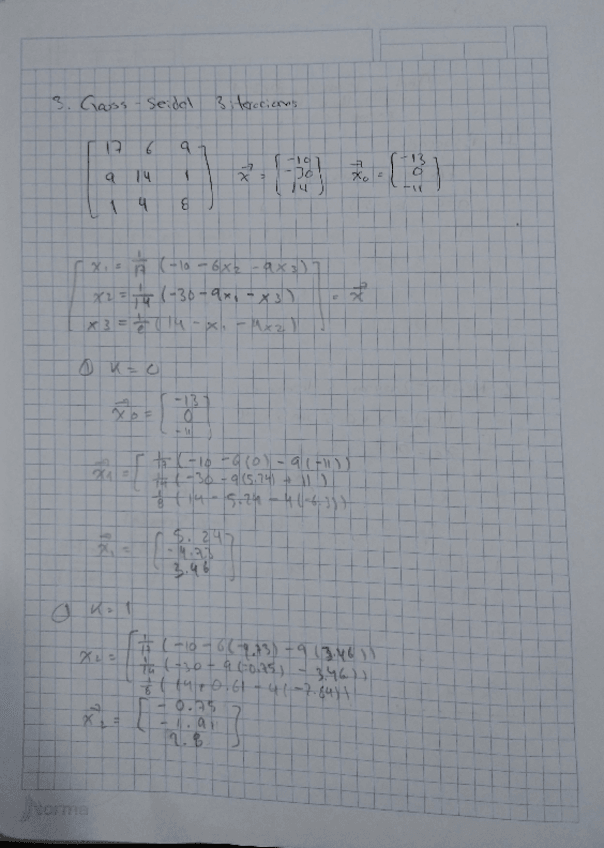 3. Gauss-Seidel 3 iteraciones
[17 6 9
9 14 1
1 4 8]
x⃗ = [-10
-30
14]
x⃗₀ = [-13
0
-11]
[x₁ = 1/17 (-10 - 6x₂ - 9x₃)
x₂ = 1/14 (-30 - 9x₁ - x₃)
x₃ = 1/8 (14 - x₁ - 4x₂)] = x⃗
K = 0
x⃗₀ = [-13
0
-11]
x⃗₁ = [1/17 (-10 - 6(0) - 9(-11))
1/14 (-30 - 9(5.24) + 11)
1/8 (14 - 5.24 - 4( ))]
x⃗₁ = [5.24
-4.73
3.46]
K = 1
x₂ = [1/17 (-10 - 6(-4.73) - 9(3.46))
1/14 (-30 - 9(-0.75) - 3.46))
1/8 (14 + 0.61 - 4( ))
x⃗₂ = [-0.75
-1.91
2.8]
Norma